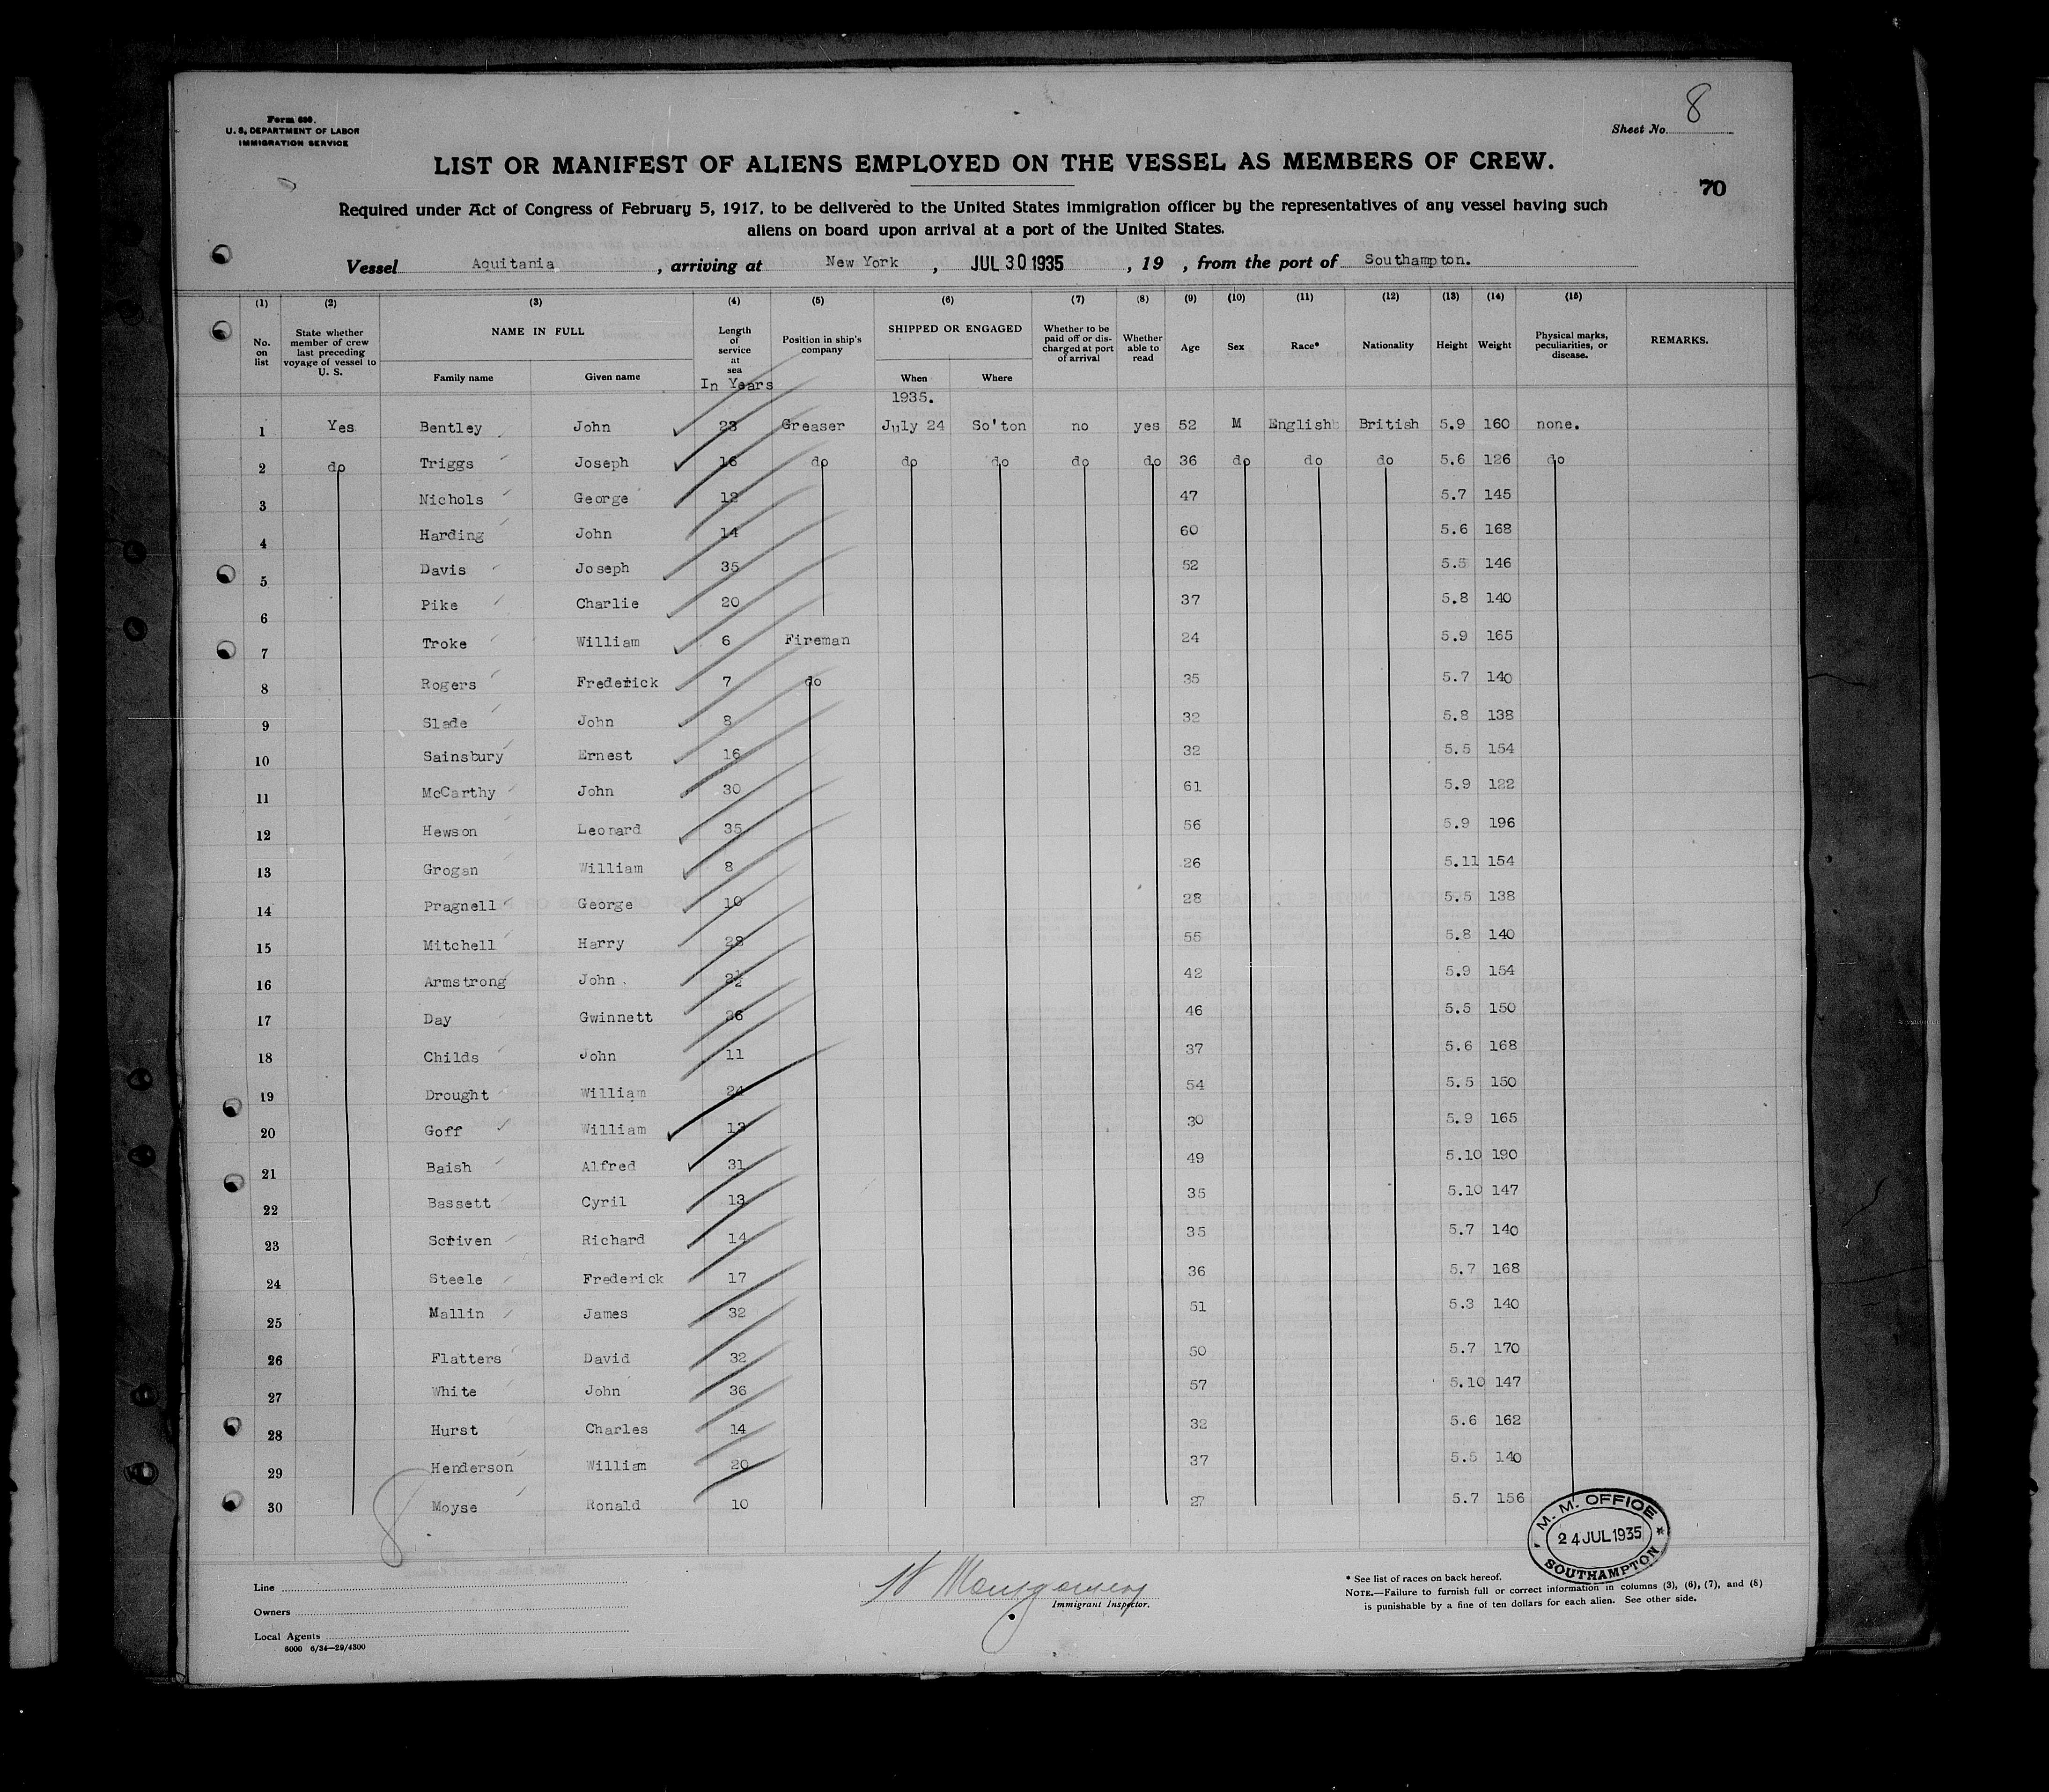 Form 680.
U. S. DEPARTMENT OF LABOR
IMMIGRATION SERVICE
Sheet No. 8
LIST OR MANIFEST OF ALIENS EMPLOYED ON THE VESSEL AS MEMBERS OF CREW.
70
Required under Act of Congress of February 5, 1917, to be delivered to the United States immigration officer by the representatives of any vessel having such
aliens on board upon arrival at a port of the United States.
Vessel Aquitania, arriving at New York, JUL 30 1935, 19 , from the port of Southampton.
(1) (2) (3) (4) (5) (6) (7) (8) (9) (10) (11) (12) (13) (14) (15)
No. on list State whether member of crew last preceding voyage of vessel to U. S. NAME IN FULL Length of service at sea Position in ship's company SHIPPED OR ENGAGED Whether to be paid off or discharged at port of arrival Whether able to read Age Sex Race* Nationality Height Weight Physical marks, peculiarities, or disease. REMARKS.
Family name Given name In Years When Where
1935.
1 Yes Bentley John 23 Greaser July 24 So'ton no yes 52 M English British 5.9 160 none.
2 do Triggs Joseph 16 do do do do do 36 do do do 5.6 126 do
3 Nichols George 12 47 5.7 145
4 Harding John 14 60 5.6 168
5 Davis Joseph 35 52 5.5 146
6 Pike Charlie 20 37 5.8 140
7 Troke William 6 Fireman 24 5.9 165
8 Rogers Frederick 7 do 35 5.7 140
9 Slade John 8 32 5.8 138
10 Sainsbury Ernest 16 32 5.5 154
11 McCarthy John 30 61 5.9 122
12 Hewson Leonard 35 56 5.9 196
13 Grogan William 8 26 5.11 154
14 Pragnell George 10 28 5.5 138
15 Mitchell Harry 28 55 5.8 140
16 Armstrong John 42 5.9 154
17 Day Gwinnett 26 46 5.5 150
18 Childs John 11 37 5.6 168
19 Drought William 24 54 5.5 150
20 Goff William 13 30 5.9 165
21 Baish Alfred 31 49 5.10 190
22 Bassett Cyril 13 35 5.10 147
23 Scriven Richard 14 35 5.7 140
24 Steele Frederick 17 36 5.7 168
25 Mallin James 32 51 5.3 140
26 Flatters David 32 50 5.7 170
27 White John 36 57 5.10 147
28 Hurst Charles 14 32 5.6 162
29 Henderson William 20 37 5.5 140
30 Moyse Ronald 10 27 5.7 156
8
M. M. OFFICE
24 JUL 1935
SOUTHAMPTON
Line
Owners
Local Agents
6000 6/34—29/4300
Montgomery
Immigrant Inspector.
* See list of races on back hereof.
NOTE.—Failure to furnish full or correct information in columns (3), (6), (7), and (8)
is punishable by a fine of ten dollars for each alien. See other side.